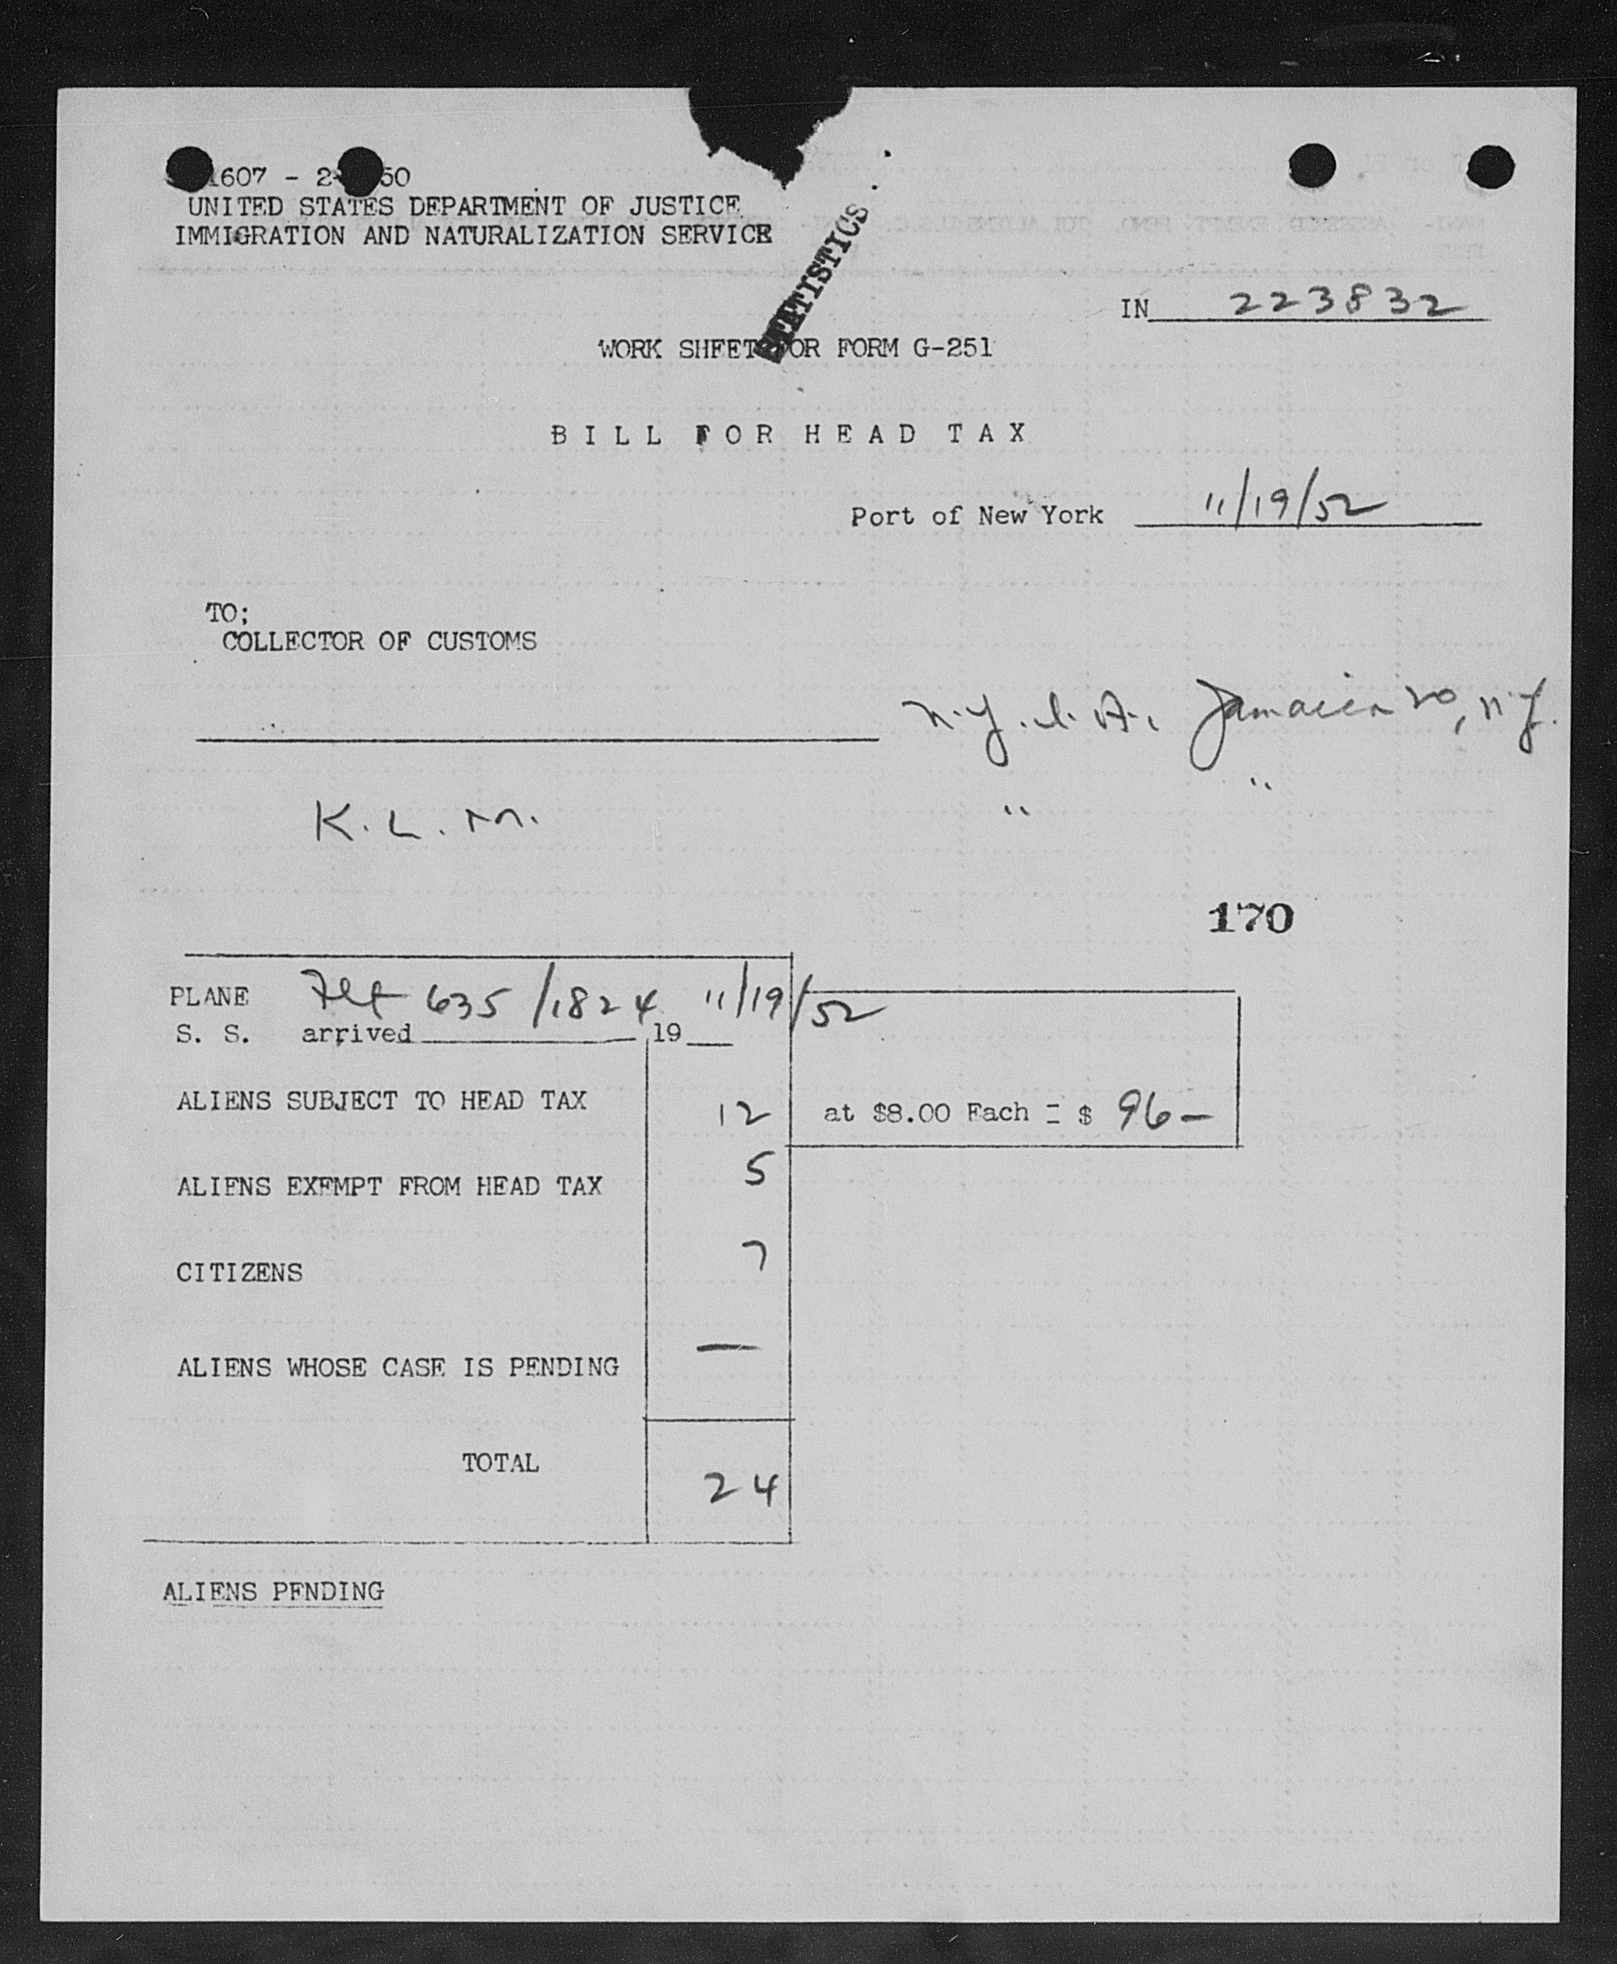 1607 - 2 50
UNITED STATES DEPARTMENT OF JUSTICE
IMMIGRATION AND NATURALIZATION SERVICE
STATISTICS
IN 223832
WORK SHEET FOR FORM G-251
BILL FOR HEAD TAX
Port of New York 11/19/52
TO;
COLLECTOR OF CUSTOMS
N.Y.I.A. Jamaica 20, N.Y.
K.L.M. " "
170
PLANE Flt 635/1824 11/19/52
S. S. arrived 19
ALIENS SUBJECT TO HEAD TAX 12 at $8.00 Each = $ 96-
ALIENS EXEMPT FROM HEAD TAX 5
CITIZENS 7
ALIENS WHOSE CASE IS PENDING —
TOTAL 24
ALIENS PENDING